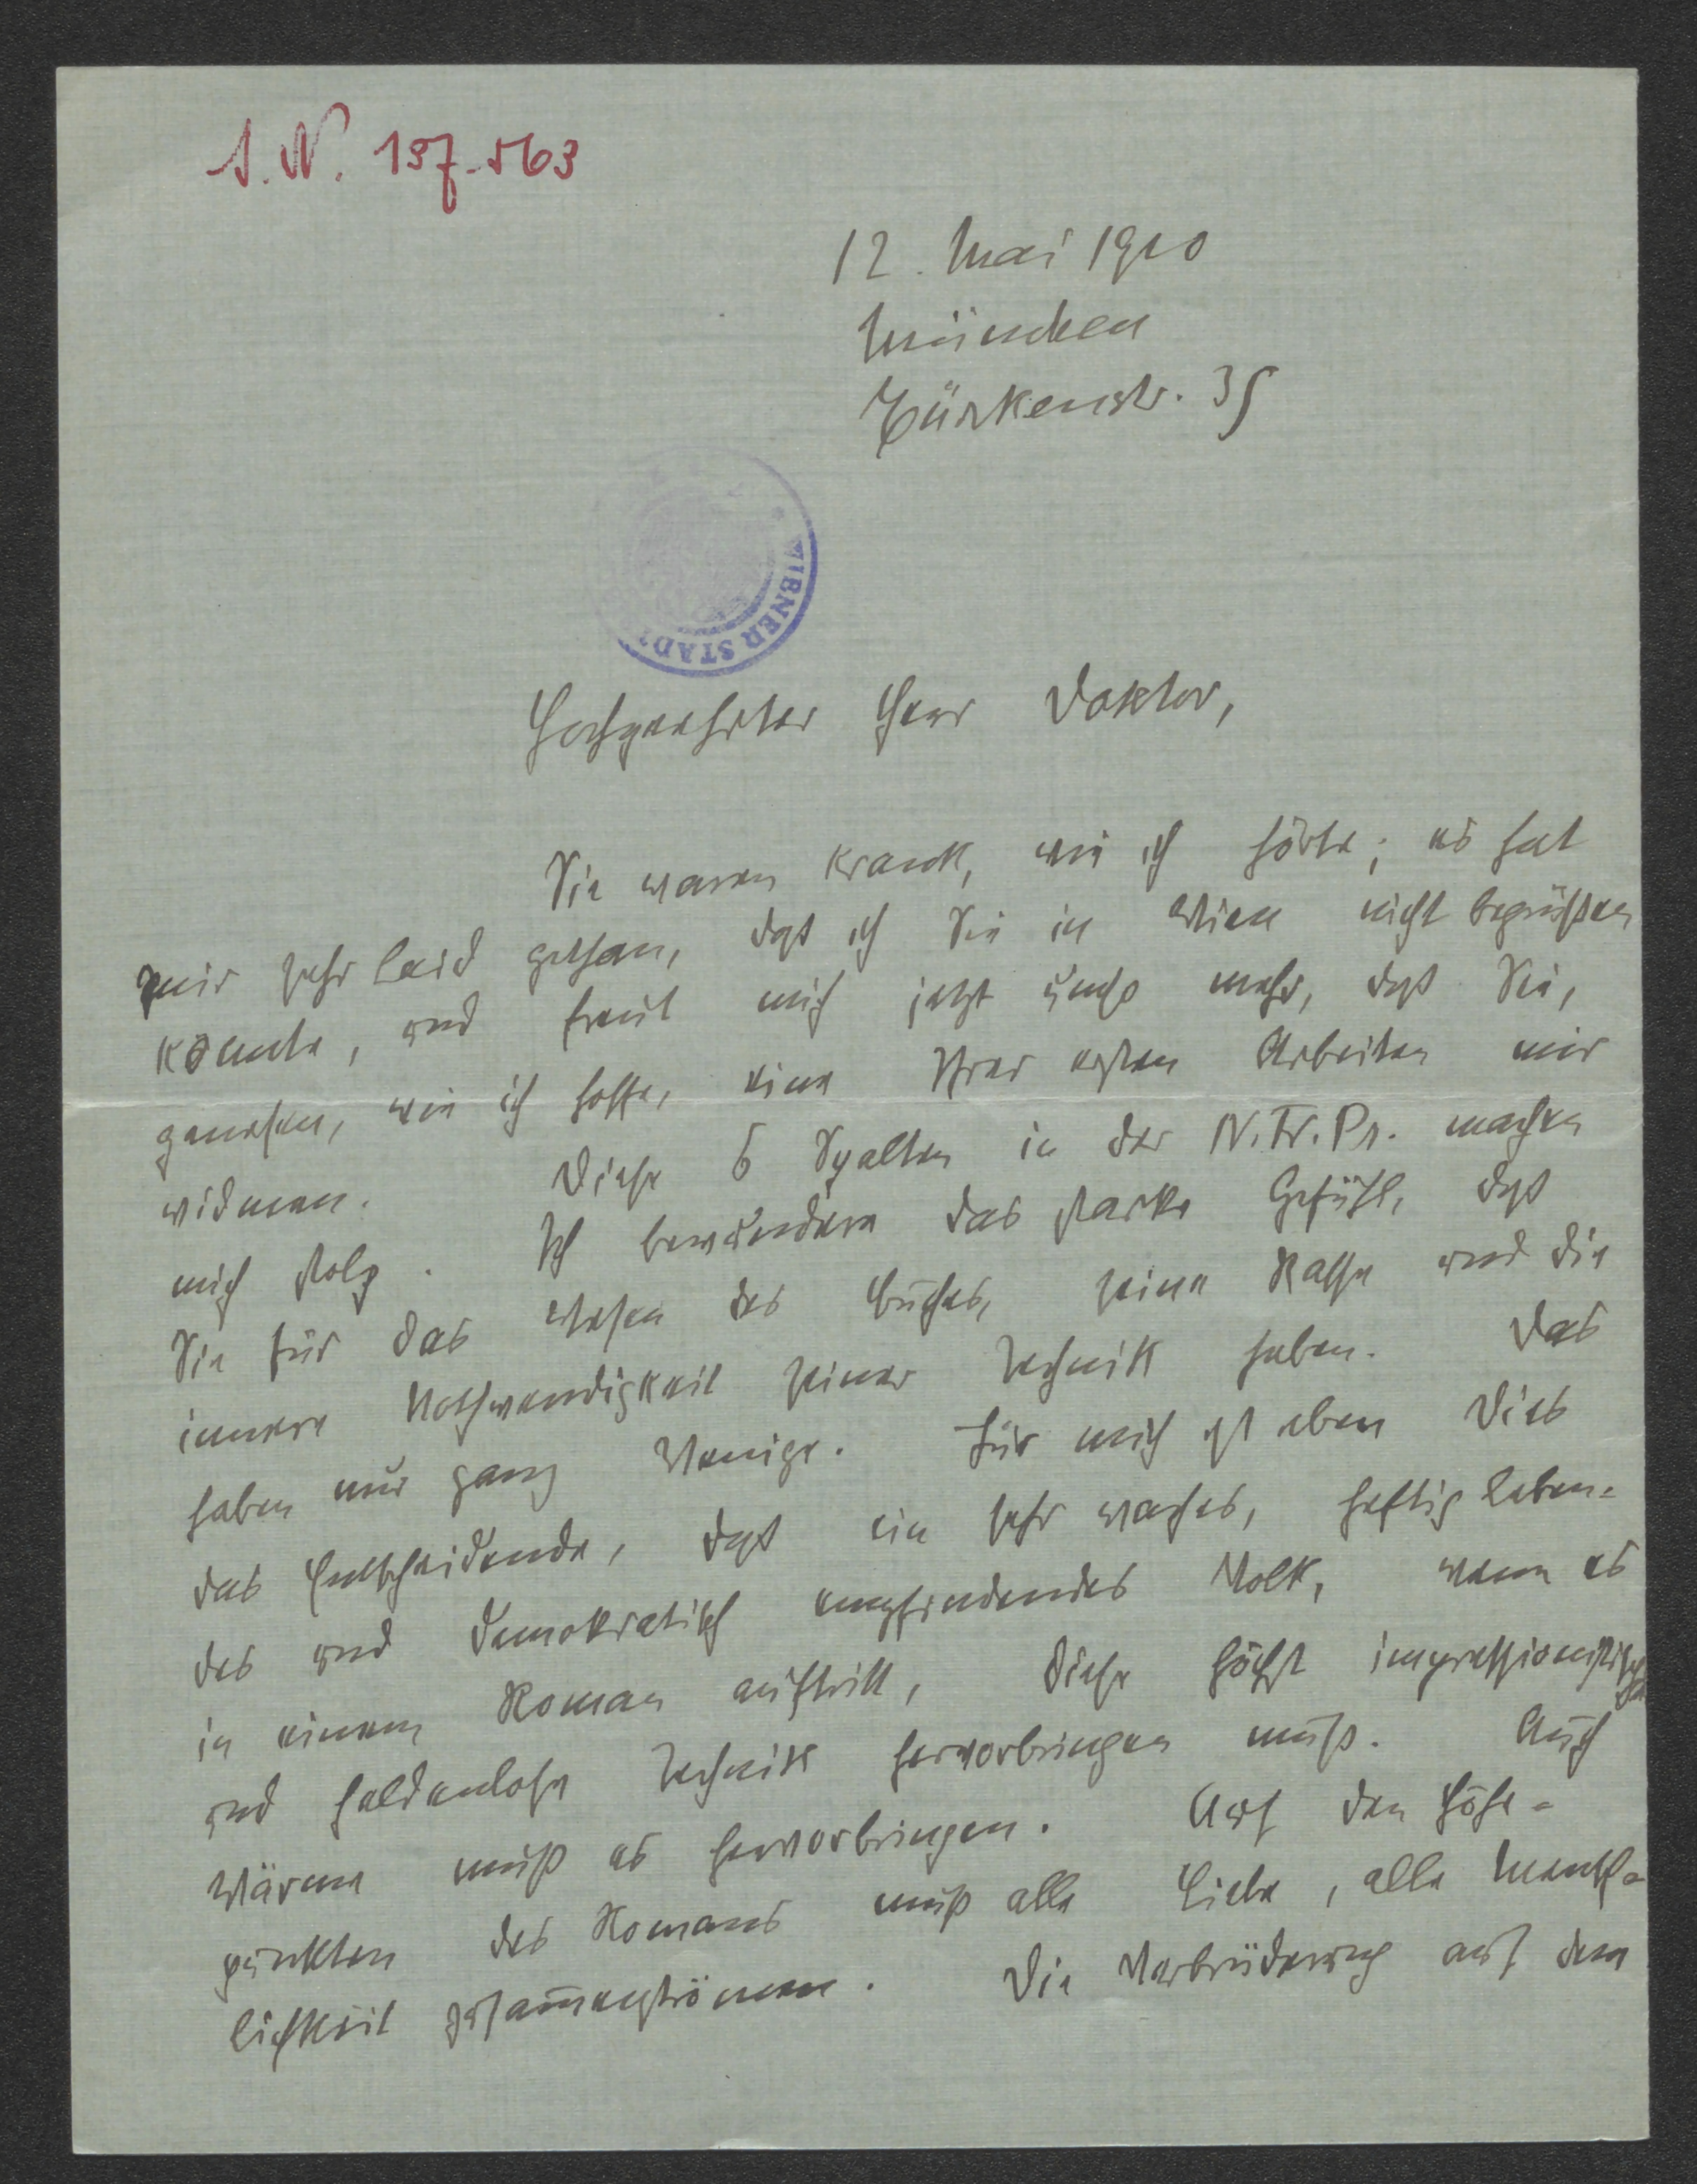 I. N. 197.563
12. Mai 1910
München
Türkenstr. 35
WIENER STADT
Hochgeehrter Herr Doktor,
Sie waren krank, wie ich hörte; es hat
mir sehr leid gethan, daß ich Sie in Wien nicht begrüßen
konnte, und freut mich jetzt umso mehr, daß Sie,
genesen, wie ich hoffe, eine Ihrer ersten Arbeiten mir
widmen. Diese 6 Spalten in der N. Fr. Pr. machen
mich stolz. Ich bewundere das starke Gefühl, daß
Sie für das Wesen des Buches, seine Rasse und die
innere Nothwendigkeit seiner Technik haben. Das
haben nur ganz Wenige. Für mich ist eben Dies
das Entscheidende, daß ein sehr waches, heftig leben-
des und demokratisch empfindendes Volk, wenn es
in einem Roman auftritt, diese höchst impressionistische
und heldenlose Technik hervorbringen muß. Auch
Wärme muß es hervorbringen. Auf den Höhe-
punkten des Romans muß alle Liebe, alle Mensch-
lichkeit zusam̅enströmen. Die Verbrüderung auf dem